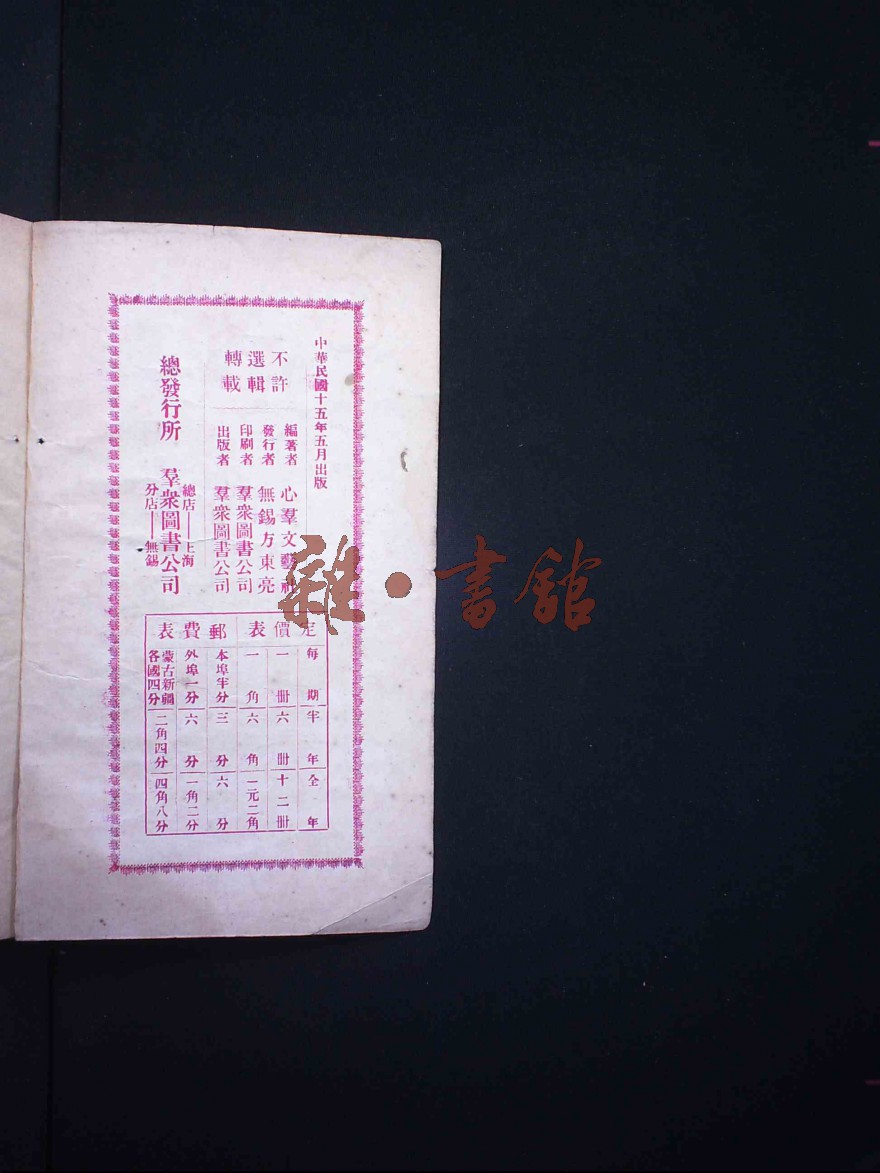 中華民國十五年五月出版
不許
選輯
轉載
編著者 心羣文藝社
發行者 無錫方東亮
印刷者 羣衆圖書公司
出版者 羣衆圖書公司
總發行所 羣衆圖書公司
總店——上海
分店——無錫
定價表 郵費表
每期 半年 全年
一冊 六冊 十二冊
一角 六角 一元二角
本埠半分 三分 六分
外埠一分 六分 一角二分
蒙古新疆各國四分 二角四分 四角八分
雜·書館